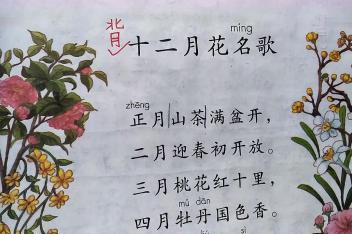 北月
míng
十二月花名歌
zhēng
正月山茶满盆开，
二月迎春初开放。
三月桃花红十里，
mǔ dān
四月牡丹国色香。